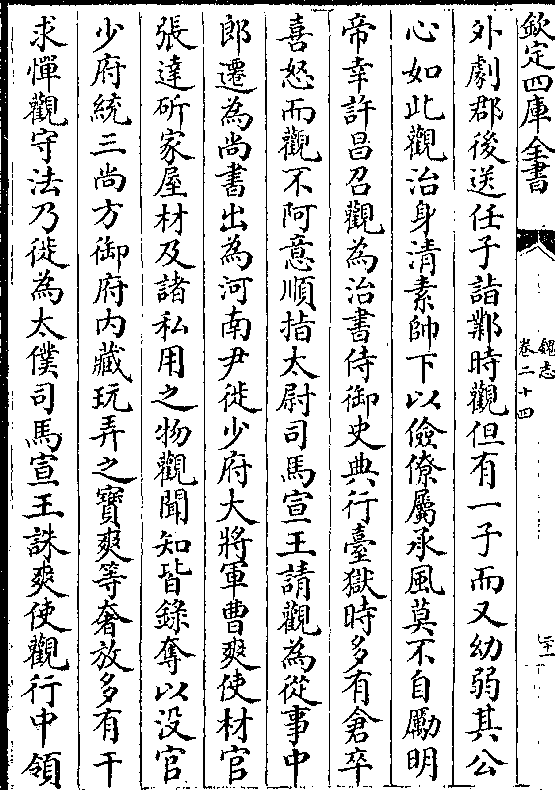 欽定四庫全書
魏志
卷二十四
外劇郡後送任子詣鄴時觀但有一子而又幼弱其公
心如此觀治身清素帥下以儉僚屬承風莫不自勵明
帝幸許昌召觀為治書侍御史典行臺獄時多有倉卒
喜怒而觀不阿意順指太尉司馬宣王請觀為從事中
郎遷為尚書出為河南尹徙少府大將軍曹爽使材官
張達斫家屋材及諸私用之物觀聞知皆錄奪以沒官
少府統三尚方御府内藏玩弄之寶爽等奢放多有干
求憚觀守法乃徙為太僕司馬宣王誅爽使觀行中領